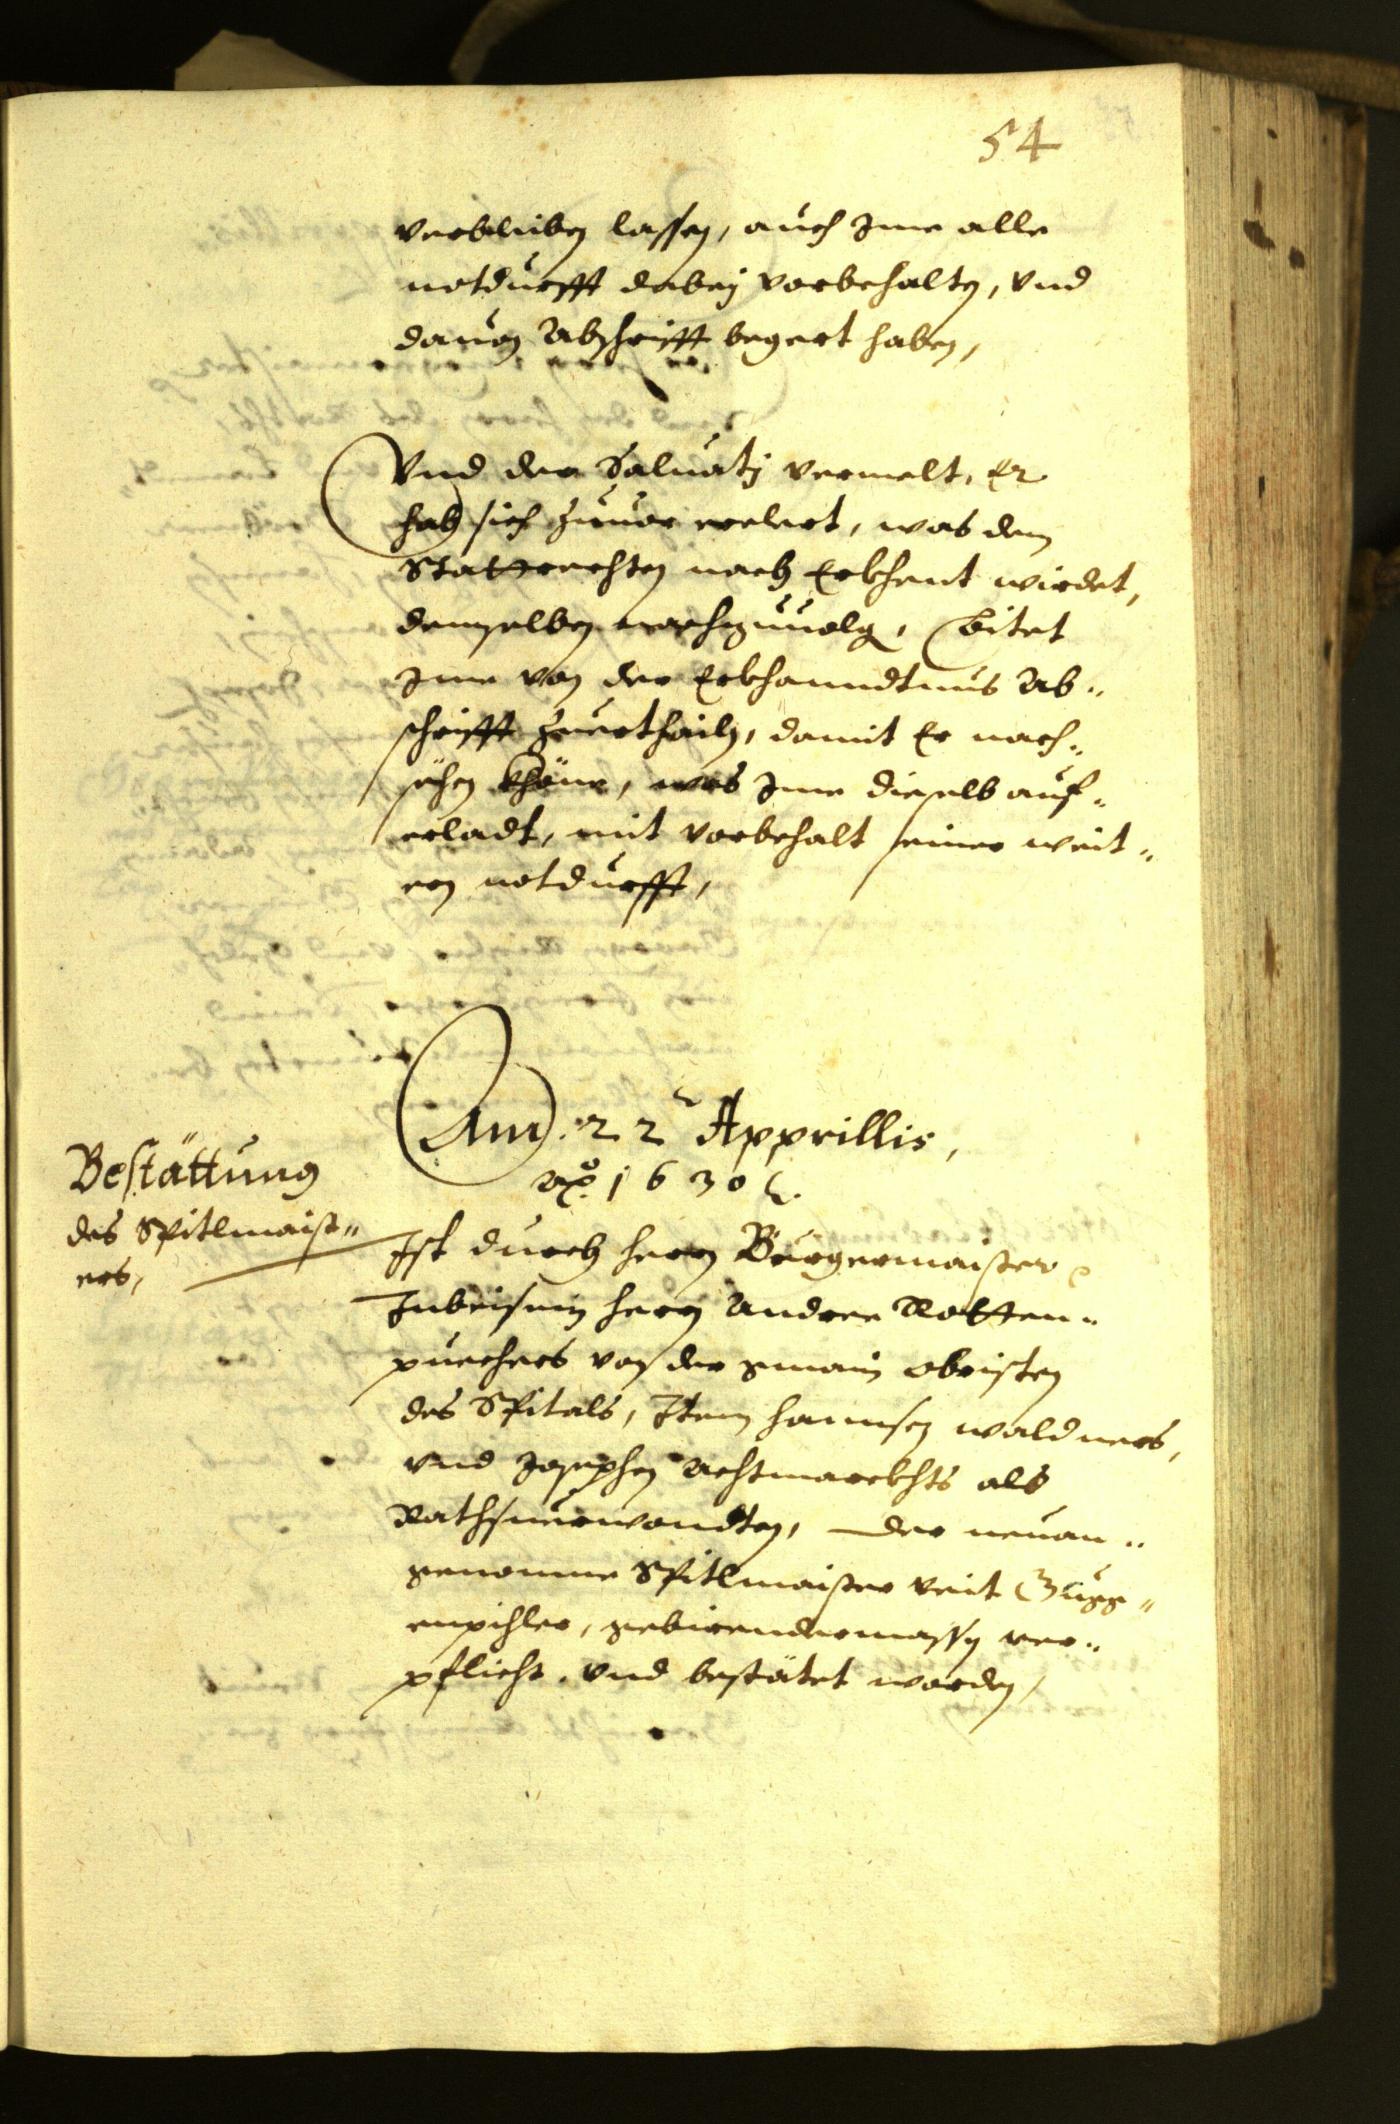 54
verbleiben lassen, auch Ime alle
notdurfft dabeÿ vorbehalten, Vnd
dauon Abschrifft begert haben,
Vnd der Saluatj vermelt, Er
hab sich zuuor erclert, was dem
Stattrechten nach Erkhent wirdet,
demselben nachzuuolgen, Bitet
Ime von der Erkhanndtnus Ab-
schrifft zuerthailn, damit Er nach-
sehen khöne, was Ime dieselb auf-
erladt, mit vorbehalt seiner weit-
ern notdurfft,
Am 22 Apprillis,
Ao. 1630
Bestättung
des Spitlmaist-
ers,
Ist durch herrn Burgermaister
Inbeisein herrn Andree Rotten-
puechers von der gmain obristen
des Spitals, Item hannsen waldners,
vnd Josephen Achtmarckhts als
Rathsuerwandten, der neuan-
genomne Spitlmaister Veit Gugg-
enpihler, gebirendermassen ver-
pflicht, Vnd bestätet worden,